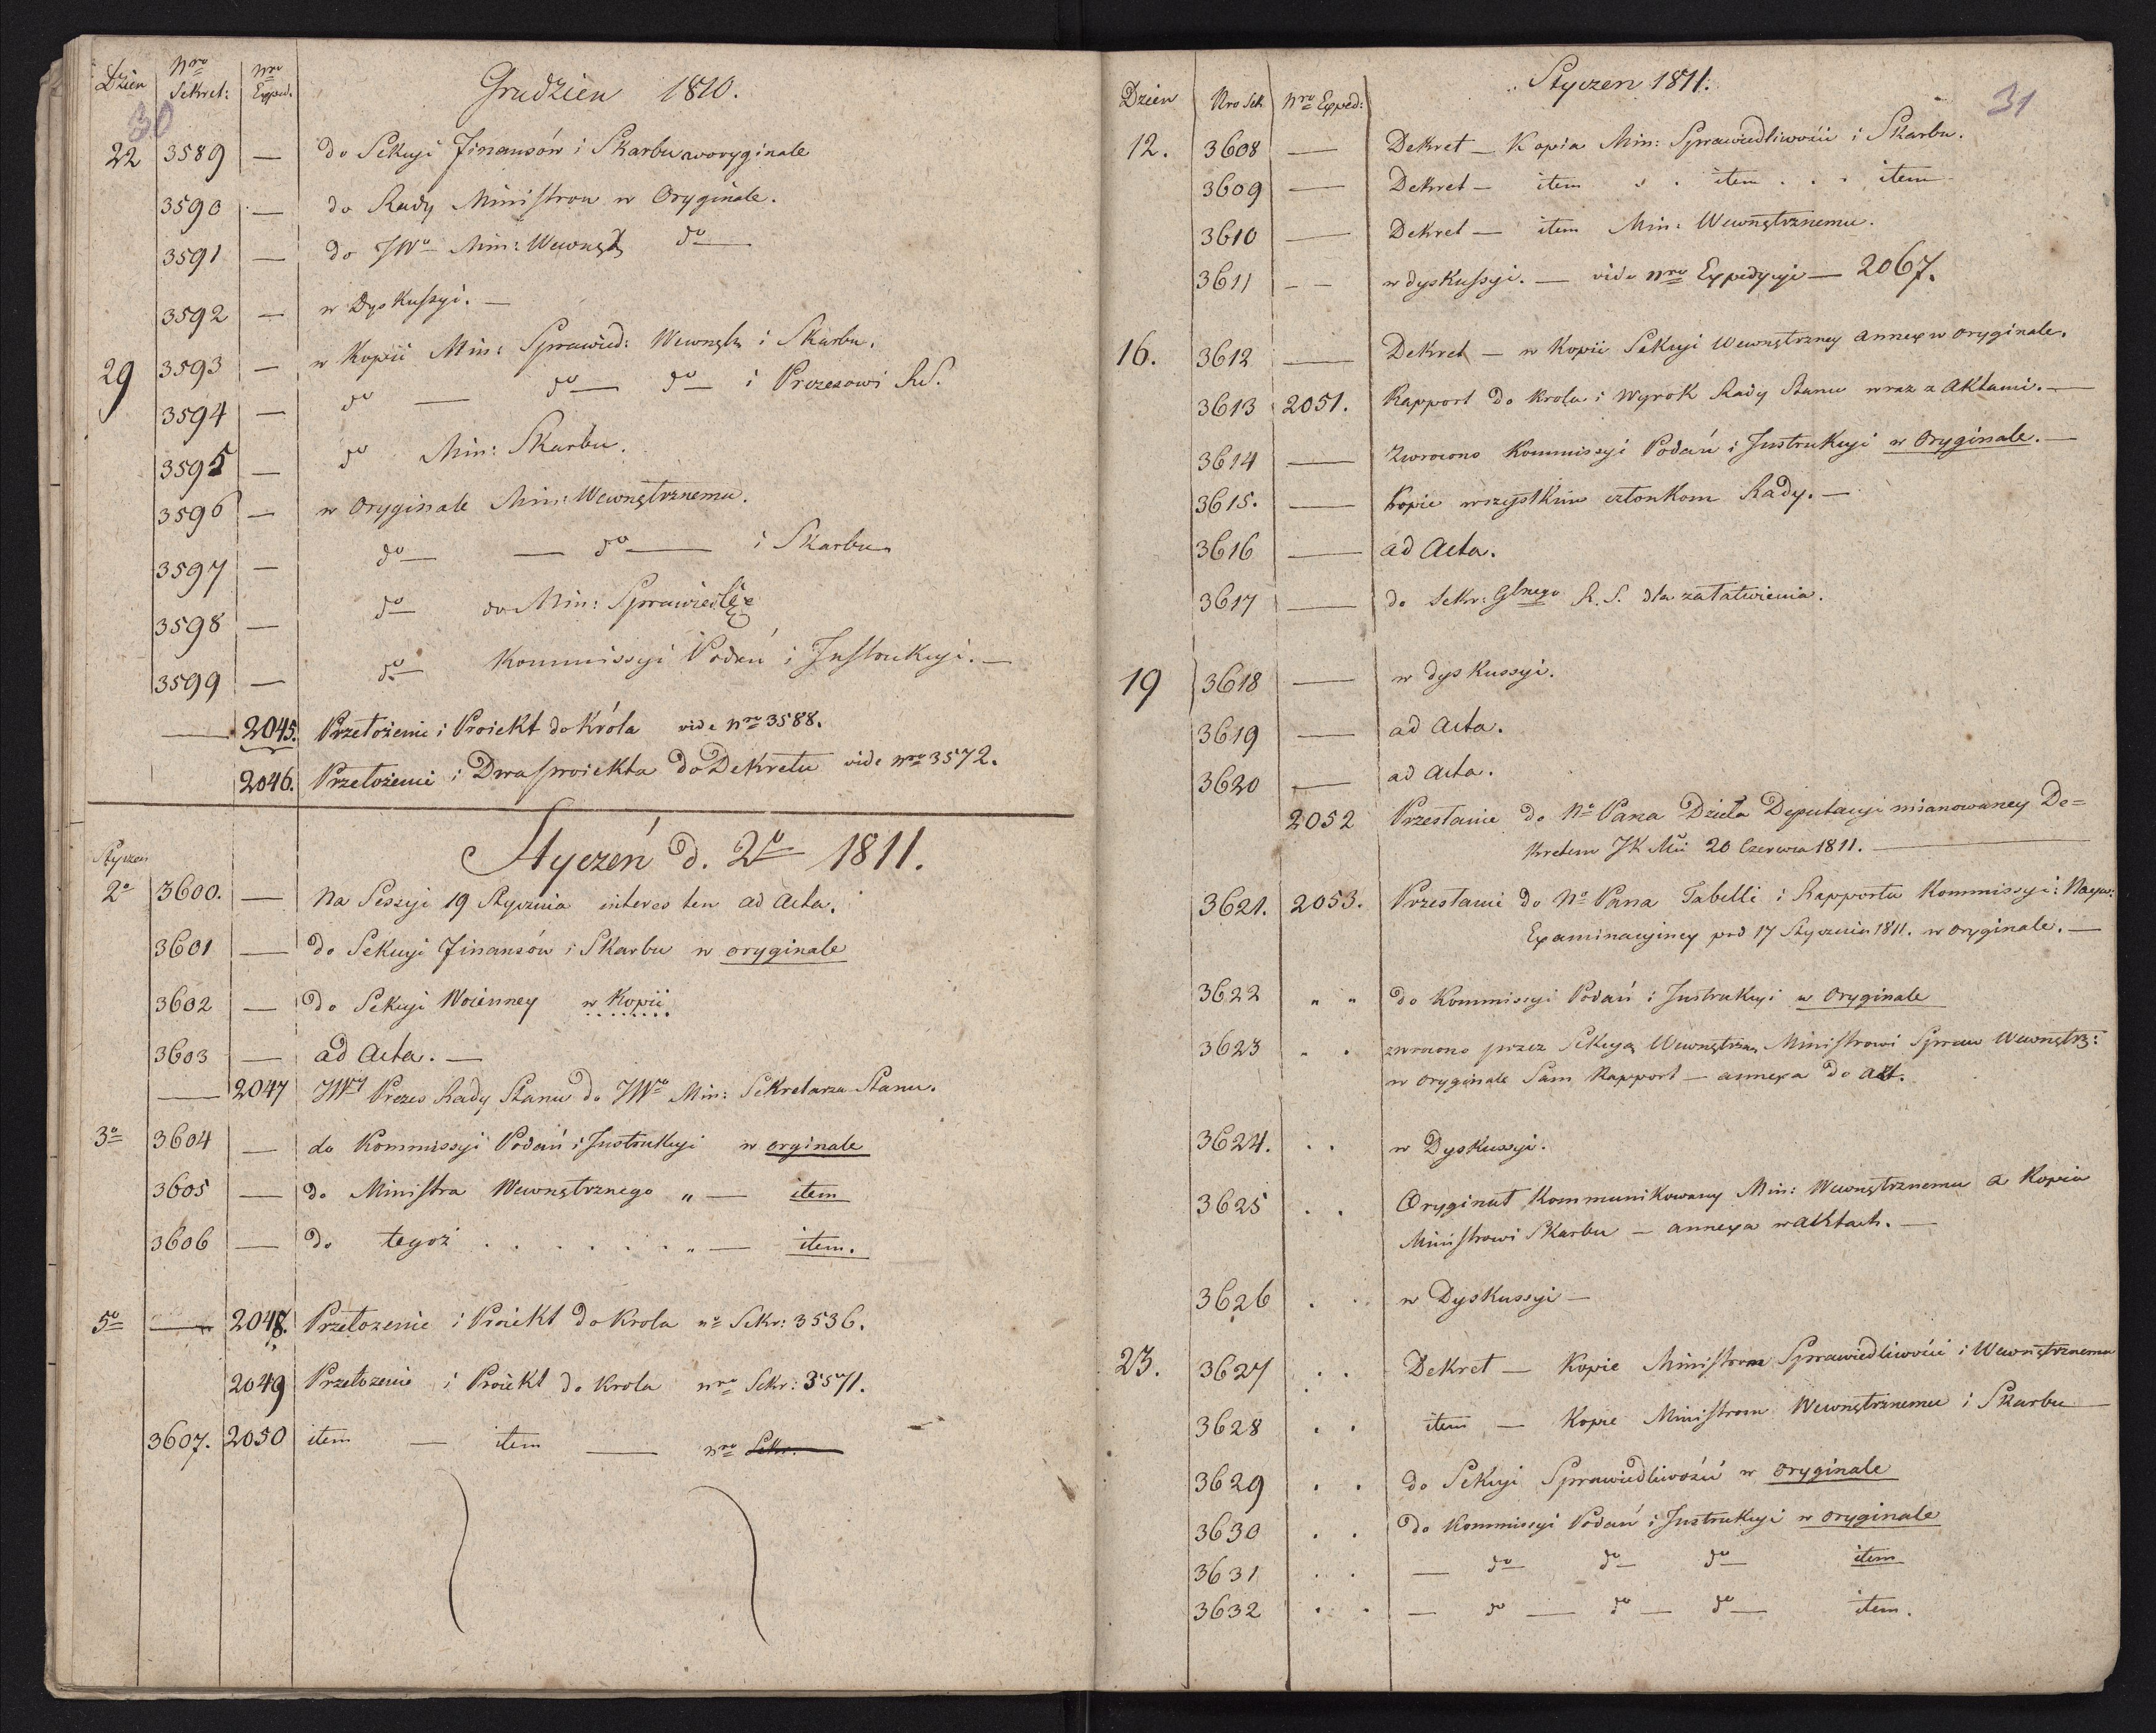 Dzien Nro Sekret: Nro Exped. Grudzien 1810.
30
22 3589 — do Sekcyi Finansów i Skarbu w oryginale
3590 — do Rady Ministrow w Oryginale.
3591 — do JWo Min: Wewnętz do —
3592 — w Dyskussyi. —
29 3593 — w Kopii Min: Sprawied: Wewnętz i Skarbu.
3594 — do — do — do — i Prezesowi RS.
3595 — do Min: Skarbu.
3596 — w Oryginale Min: Wewnętrznemu.
3597 — do — — do — i Skarbu
3598 — do do Min: Sprawiedl
3599 — do Kommissyi Podań i Instrukcyi. —
— 2045. Przełożenie i Proiekt do Króla vide nro 3588.
2046. Przełożenie i Dwa proiekta do Dekretu vide nro 3572.
Styczeń d. 2o 1811.
Styczen
2o 3600. — Na Sessyi 19 Stycznia interes ten ad Acta.
3601 — do Sekcyi Finansów i Skarbu w oryginale
3602 — do Sekcyi Woienney w Kopii
3603 — ad Acta. —
— 2047 JWy Prezes Rady Stanu do JWo Min: Sekretarza Stanu.
3o 3604 — do Kommissyi Podań i Instrukcyi w orginale
3605 — do Ministra Wewnętrznego „ — item
3606 — do tegoż . . . . . . . „ — item.
5o — 2048. Przełozenie i Proiekt do Krola no Sekr: 3536.
2049 Przełozenie i Proiekt do Krola nro Sekr: 3571.
3607. 2050 item — item — nro Sekr.
Dzien Nro Sek Nro Exped: Styczen 1811.
31
12. 3608 — Dekret — Kopia Min: Sprawiedliwości i Skarbu.
3609 — Dekret — item . . item . . . item
3610 — Dekret — item Min: Wewnętrznemu.
3611 – – w dyskussyi. — vide nro Expedycyi — 2067.
16. 3612 — Dekret — w Kopii Sekcyi Wewnętrzney annex w oryginale.
3613 2051. Rapport do Krola i Wyrok Rady Stanu wraz z Aktami. —
3614 — Zwrocono Kommissyi Podań i Instrukcyi w Oryginale. —
3615. — Kopie wszystkim członkom Rady. —
3616 — ad Acta.
3617 — do Sekr: Glnego R. S. dla załatwienia.
19 3618 — w dyskussyi.
3619 — ad Acta.
3620 — ad Acta.
2052 Przesłanie do No Pana Dzieła Deputacyi mianowaney De=
kretem JK Mci 20 Czerwca 1811. —
3621. 2053. Przesłanie do No Pana Tabelli i Rapportu Kommissyi: Nayw:
Examinacyiney pod 17 Stycznia 1811. w oryginale. —
3622 „ „ do Kommissyi Podań i Instrukcyi w Oryginale
3623 . . zwrocono przez Sekcyą Wewnętrzną Ministrowi Spraw Wewnętrz:
w oryginale Sam Rapport — annexa do akt.
3624. . . w Dyskussyi.
3625 . . Oryginał Kommunikowany Min: Wewnętrznemu a Kopia
Ministrowi Skarbu — annexa w aktach. —
3626 . . w Dyskussyi —
23. 3627 . . Dekret — Kopie Ministrom Sprawiedliwości i Wewnętrznemu
3628 . . item — Kopie Ministrom Wewnętrznemu i Skarbu —
3629 . . do Sekcyi Sprawiedliwości w oryginale
3630 . . do Kommissyi Podań i Instrukcyi w oryginale
3631 . . — do — do — do — item
3632 . . — do — do — do — item.